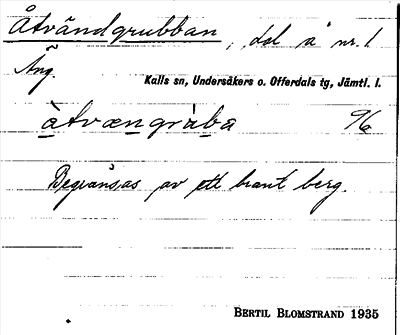 Åtvändgrubban, del å nr. 1
Äng.
Kalls sn, Undersåkers o. Offerdals tg, Jämtl. l.
àtvængràba 96
Begränsas av ett brant berg.
BERTIL BLOMSTRAND 1935